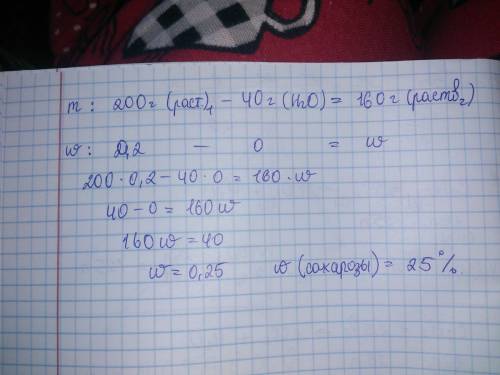 m: 200г (раст)₁ – 40г (H₂O) = 160г (раств₂)
w: 0,2 – 0 = w
200·0,2 – 40·0 = 160·w
40 – 0 = 160w
160w = 40
w = 0,25 w (сахарозы) = 25%.